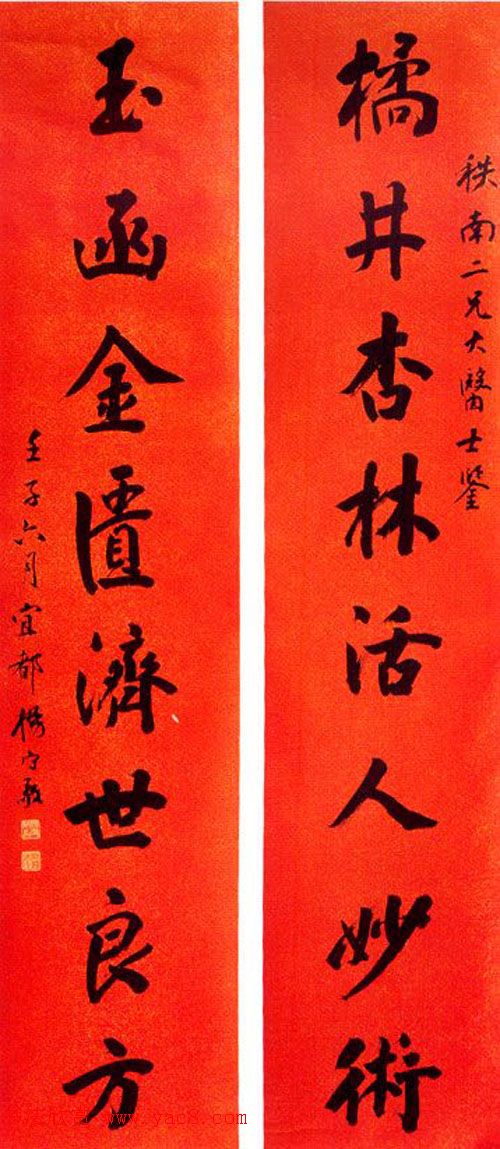 秩南二兄大醫士鑒
橘井杏林活人妙術
玉函金匱濟世良方
壬子六月宜都楊守敬
www.yac8.com